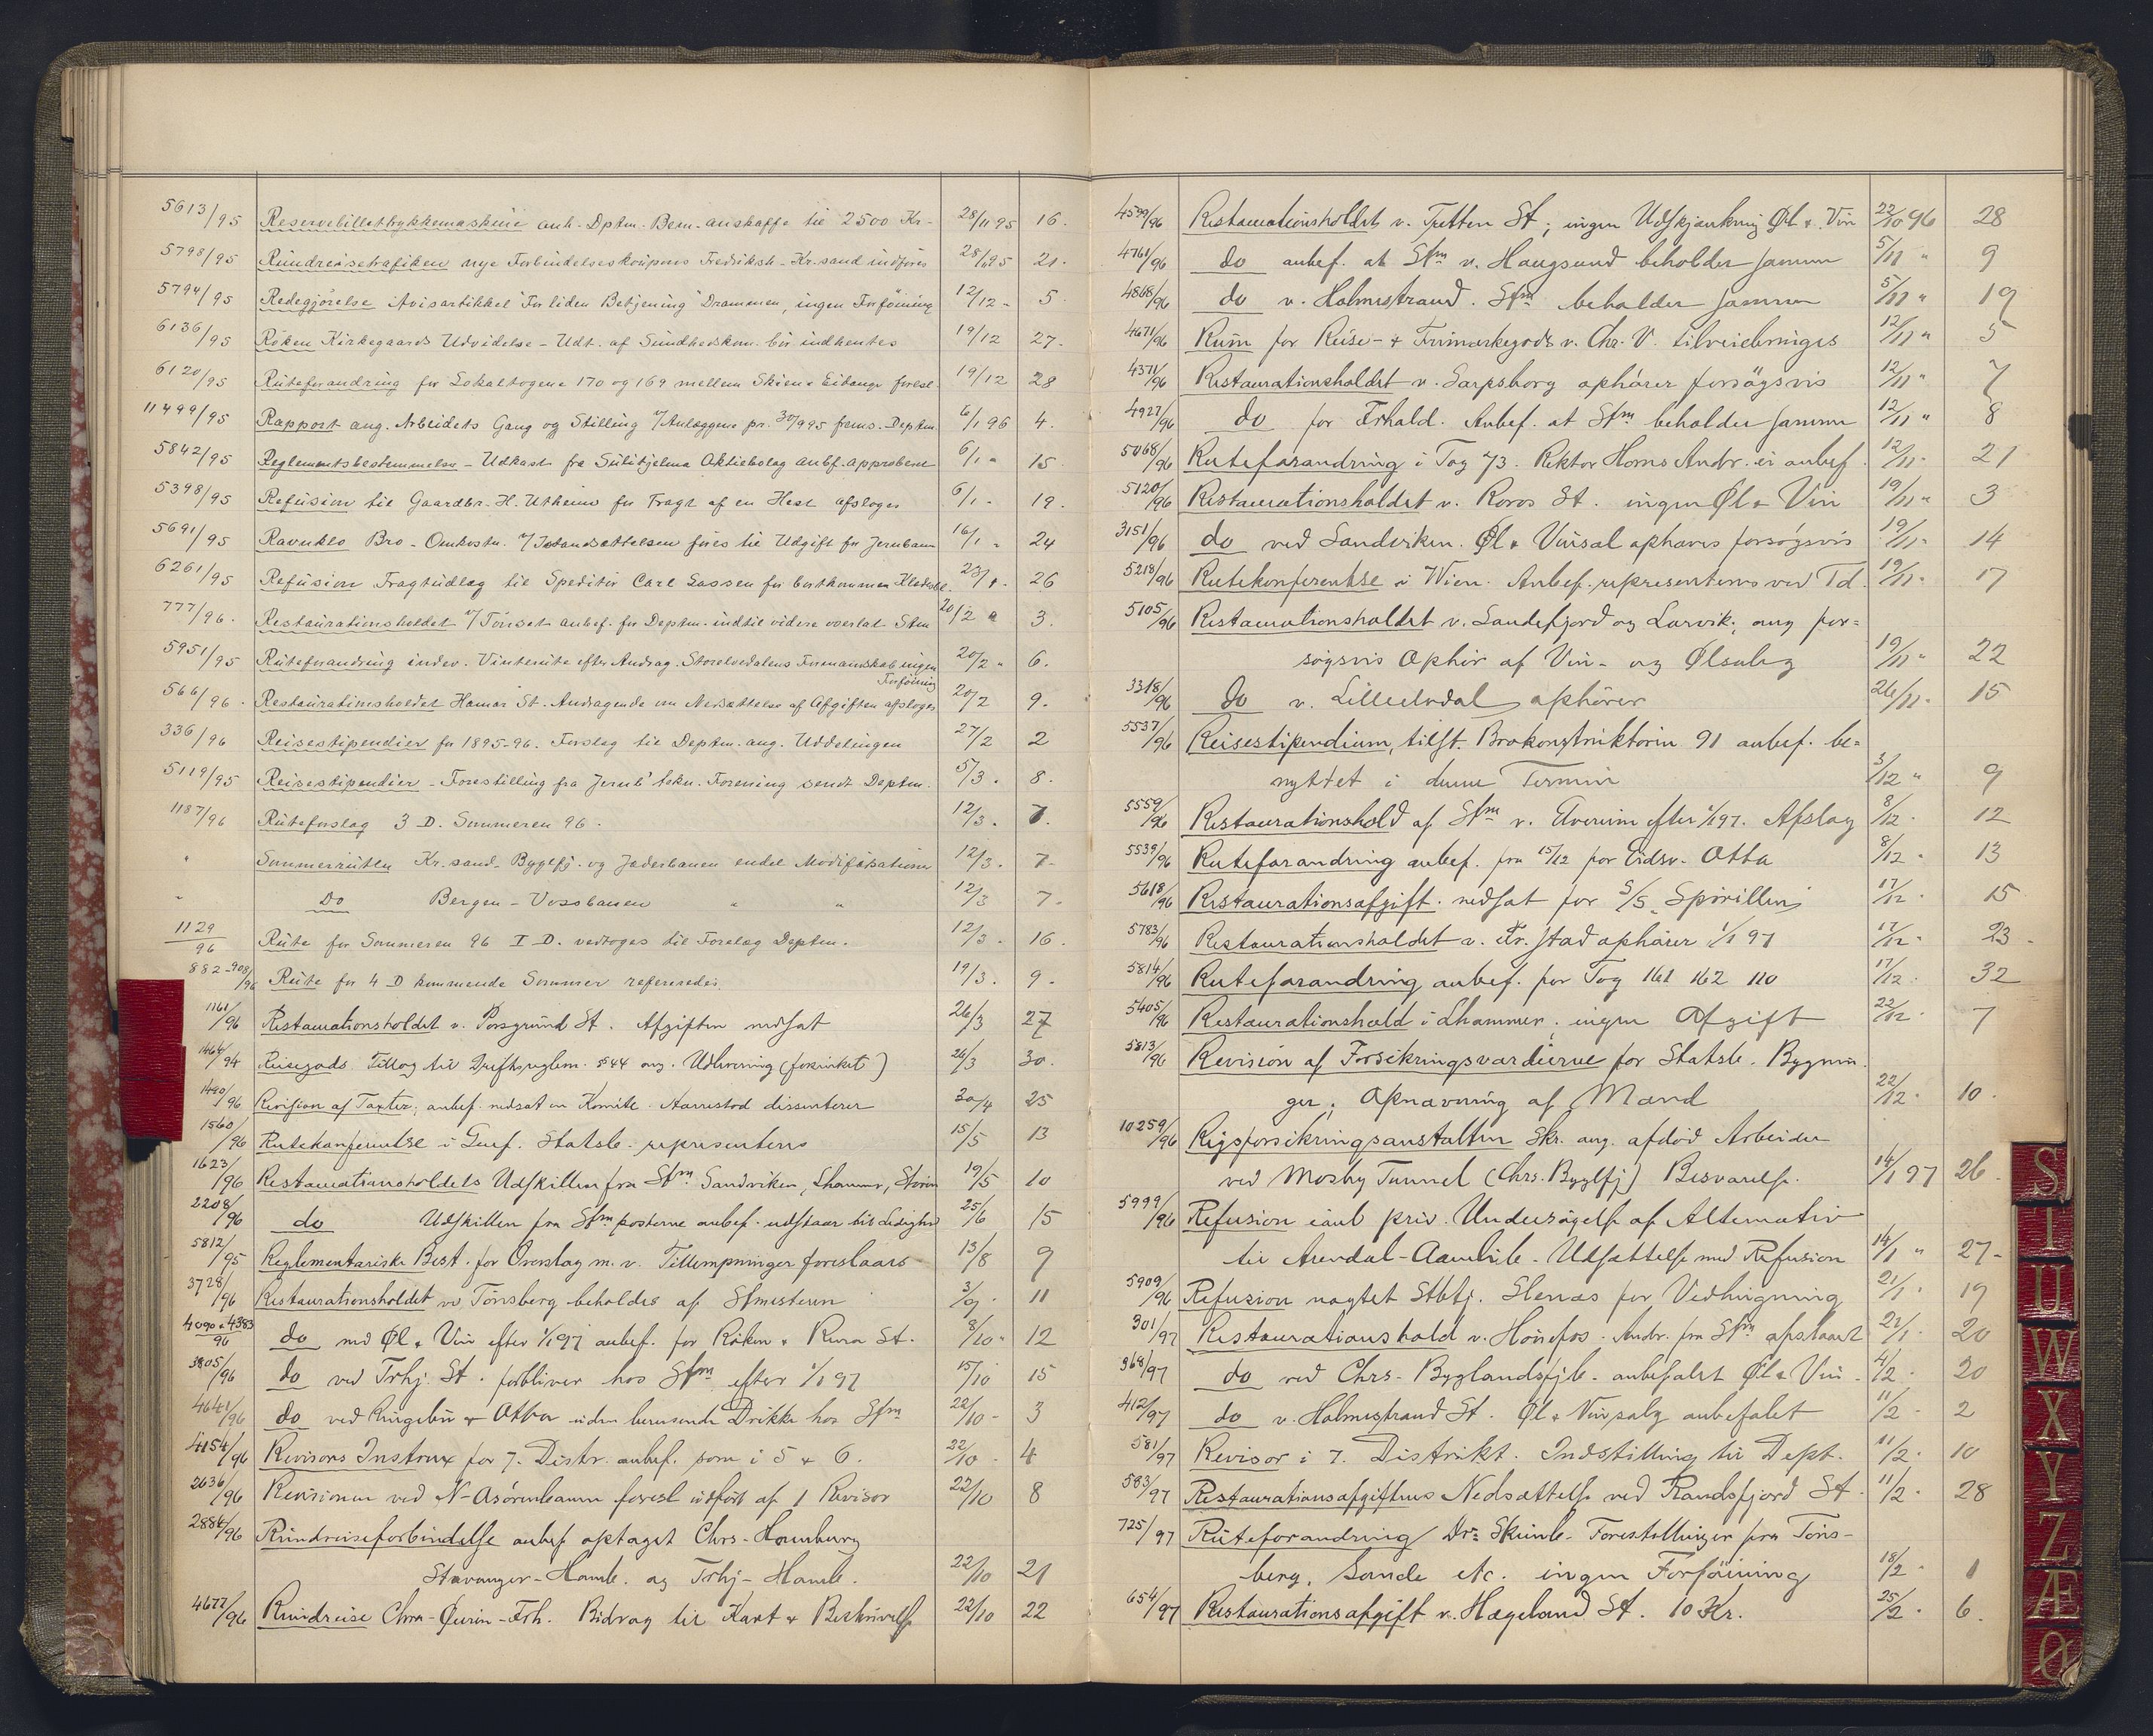 5613/95 Reservebillettrykkemaskine anh. Dptm. Bem. anskaffe til 2500 Kr. 28/11 95 16.
5798/95 Rundreisetrafiken nye Forbindelseskoupons Fredriksh - Kr.sand indføres 28/11 95 21.
5794/95 Redegjørelse i Avisartikkel "For liden Betjening" Drammen, ingen Forføining 12/12 - 5
6136/95 Røken Kirkegaards Udvidelse - Udt. af Sundhedskom. bør indhentes 19/12 27.
6120/95 Ruteforandring for Lokaltogene 170 og 169 mellem Skien & Eidanger foresl. 19/12 28
11499/95 Rapport ang. Arbeidets Gang og Stilling v/Anlæggene pr. 30/9 95 frems. Deptm. 6/1 96 4.
5842/95 Reglementsbestemmelser - Udkast fra Sulitjelma Aktiebolag anbf. approberet 6/1 " 15
5398/95 Refusion til Gaardbr. H. Utheim for Fragt af en Hest afsloges 6/1 - 19.
5691/95 Ravnklo Bro - Omkostn. v/Istandsættelsen føres til Udgift for Jernbanen 16/1 " 24
6261/95 Refusion Fragtudlæg til Speditør Carl Lassen for bortkommen 23/1 - 26
777/96. Restaurationsholdet v/Tønset anbef. for Deptm. indtil videre overlat Stm 20/2 " 3.
5951/95 Ruteforandring indev. Vinterrute efter Andrag. Storelvedalens Formandskab ingen 20/2 " 6.
Forføining
566/96. Restaurationsholdet Hamar St. Andragende om Nedsættelse af Afgiften afsloges 20/2 9.
336/96 Reisestipendier for 1895-96. Forslag til Deptm. ang. Uddelingen 27/2 2
5119/95 Reisestipendier - Forestilling fra Jernb. tekn. Forening sendt Deptm. 5/3. 8.
1187/96 Ruteforslag 3 D. Sommeren 96. 12/3. 7.
" Sommerruten Kr.sand - Byglfj. og Jæderbanen endel Modifikationer 12/3. 7-
" Do Bergen - Vossbanen " " 12/3 7.
1129/96 Rute for Sommeren 96 I D. vedtoges til Forelæg Deptm. 12/3. 16.
882-908/96 Rute for 4 D kommende Sommer refereredes. 19/3. 9.
1161/96 Restaurationsholdet v. Porsgrund St. Afgiften nedsat 26/3 27
1464/94 Reisegods Tillæg til Driftsreglem. § 44 ang. Udlevering (forsinket) 26/3 30.
1490/96 Revision af Taxter; anbef. nedsat en Komite. Harrestad dissenterer 30/4 25
1560/96 Rutekonferentse i Genf. Statsb. representeres 15/5 13
1623/96 Restaurationsholdets Udskillen fra Stm. Sandviken, Lhammer, Støren 19/5 10
2208/96 do Udskillen fra Stm posterne anbef. udstaar til Ledighed 25/6 15
5812/95 Reglementariske Best. for Overslag m. v. Tillempninger foreslaaes 13/8 9
3728/96 Restaurationsholdet ved Tønsberg beholdes af Stmesteren 3/9. 11
4090 & 4383/96 do med Øl & Vin efter 1/1 97 anbef. for Røken & Rena St. 8/10 " 12
3805/96 do ved Trhj. St. forbliver hos Stm efter 1/1 97 15/10 15
4641/96 do ved Ringebu & Otta uden berusende Drikke hos Stm 22/10 - 3
4154/96 Revisors Instrux for 7. Distr. anbef. som i 5 & 6. 22/10. 4
2636/96 Revisionen ved N-Asørenbanen foresl. udført af 1 Revisor 22/10 8
2886/96 Rundreiseforbindelse anbef. optaget Chrs - Hamburg
Stavanger - Hamb. og Trhj - Hamb. 22/10 21
4677/96 Rundreise Chra - - Trh. Bidrag til Kart & Beskrivelse 22/10 22
4599/96 Restaurationsholdet v. Tretten St; ingen Udskjænkning Øl & Vin 22/10 96 28
4761/96 do anbef. at Stm v. Haugsund beholder samme 5/11 " 9
4868/96 do v. Holmestrand. Stm beholder samme 5/11 " 19
4671/96 Rum for Reise- & Frimærkegods v. Chr. V. tilveiebringes 12/11 " 5
4371/96 Restaurationsholdet v. Sarpsborg ophører forsøgsvis 12/11 " 7
4927/96 do for Frhald. Anbef. at Stm beholder samme 12/11 " 8
5068/96 Ruteforandring i Tog 73. Rektor Horns Andr. ei anbef. 12/11 - 21
5120/96 Restaurationsholdet v. Røros St. ingen Øl & Vin 19/11 " 3
3151/96 do ved Sandviken. Øl & Vinsal ophøres forsøgsvis 19/11 - 14
5218/96 Rutekonferentse i Wien. Anbef. representeres ved Td. 19/11 - 17
5105/96 Restaurationsholdet v. Sandefjord og Larvik; ang for-
søgsvis Ophør af Vin- og Ølsalg 19/11 " 22
3318/96 Do v. Lilleelvdal ophører 26/11 - 15
5537/96 Reisestipendium, tilst. Brokonstruktøren 91 anbef. be-
nyttet i denne Termin 3/12 " 9
5559/96 Restaurationshold af Stm v. Elverum efter 1/1 97. Afslag 8/12. 12
5539/96 Ruteforandring anbef. fra 15/12 for Eidsv. - Otta 8/12 - 13
5618/96 Restaurationsafgift nedsat for S/S "Spirillen" 17/12. 15
5783/96 Restaurationsholdet v. Fr.stad ophører 1/1 97 17/12 - 23 -
5814/96 Ruteforandring anbef. for Tog 161 162 110 17/12. 32
5405/96 Restaurationshold i Lhammer; ingen Afgift 22/12. 7
5813/96 Revision af Forsikringsværdierne for Statsb. Bygnin-
ger; Opnævning af Mænd 22/12. 10.
10259/96 Rigsforsikringsanstalten Skr. ang. afdød Arbeider
ved Mosby Tunnel (Chrs. Byglfj) Besvarelse. 14/1 97 26.
5999/96 Refusion priv. Undersøgelse af Alternativ
til Arendal-Aamlib. Udsættelse med Refusion 14/1 " 27-
5909/96 Refusion nægtet Stbtj. Stenas for Vedhugning 21/1. 19
301/97 Restaurationshold v. Hønefos. Andr. fra Stm afslaaet 21/1. 20
368/97 do ved Chrs - Byglandsfjb. anbefalet Øl & Vin 4/2. 20
412/97 do v. Holmestrand St. Øl & Vinsalg anbefalet 11/2. 2
581/97 Revisor i 7. Distrikt. Indstilling til Dept. 11/2. 10
583/97 Restaurationsafgiftens Nedsættelse ved Randsfjord St. 11/2. 28
725/97 Ruteforandring Dr. Skienb. Forestillinger fra Tøns-
berg, Sande etc. ingen Forføining 18/2. 1
654/97 Restaurationsafgift v. Hægeland St. 10 Kr. 25/2. 6.
S
T
U
W
X
Y
Z
Æ
Ø